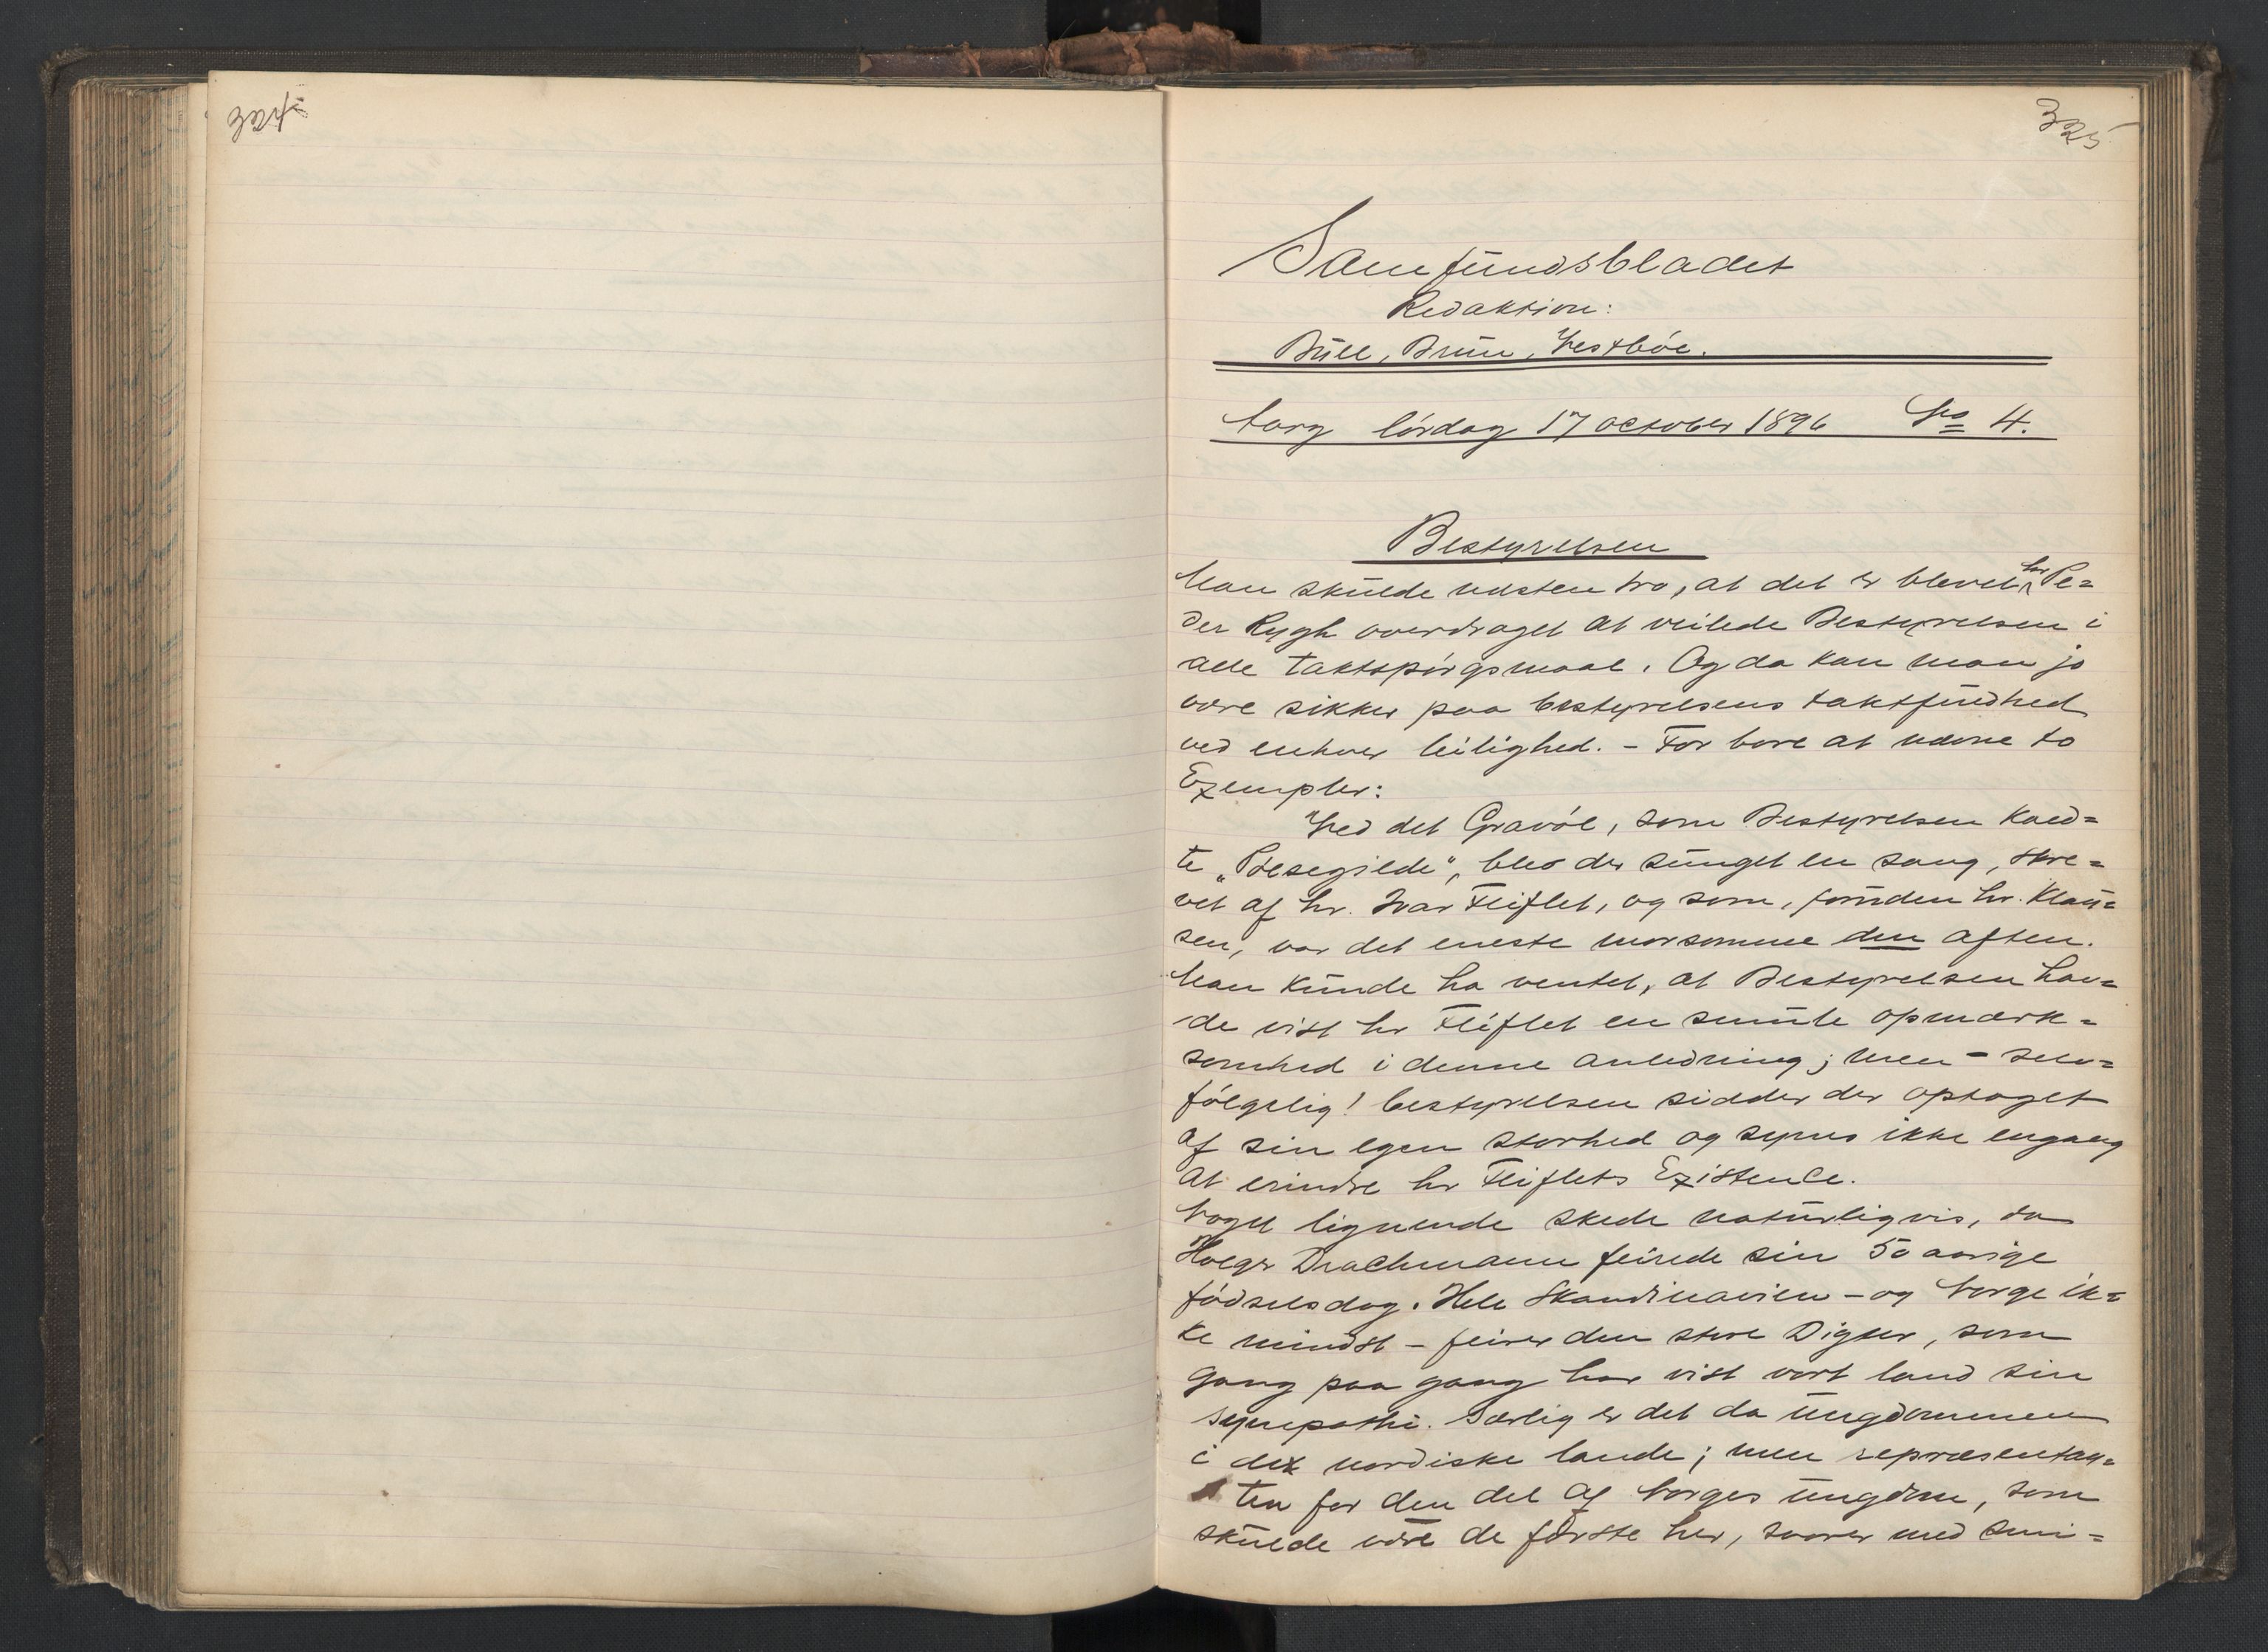 324
325
Samfundsbladet
Redaktion:
Bull, Brun, Vestbøe.
Aarg lørdag 17 october 1896 No 4.
Bestyrelsen
Man skulde næsten tro, at det er blevet hr Pe=
der Rygh overdraget at veilede Bestyrelsen i
alle taktspørgsmaal. Og da kan man jo
være sikker paa bestyrelsens taktfuldhed
ved enhver leilighed. - For bare at nævne to
Exempler:
Ved det Gravøl, som Bestyrelsen kald=
te "Pølsegilde", blev der sunget en sang, skre=
vet af hr. Ivar Fleiflet, og som, foruden hr. Klau=
sen, var det eneste morsomme den aften.
Man kunde ha ventet, at Bestyrelsen hav=
de vist hr Fleiflet en smule opmærk=
somhed i denne anledning; men - selv=
følgelig! bestyrelsen sidder der optaget
af sin egen storhed og synes ikke engang
at erindre hr Fleiflets Existence.
Noget lignende skede naturligvis, da
Holger Drachmann feirede sin 50 aarige
fødselsdag. Hele Skandinavien - og Norge ik=
ke mindst - feirer den store Digter, som
gang paa gang har vist vort land sin
sympathi. Særlig er det da ungdommen
i de nordiske lande; men repræsentan=
ten for den del af Norges ungdom, som
skulde være de første her, svarer med smi=